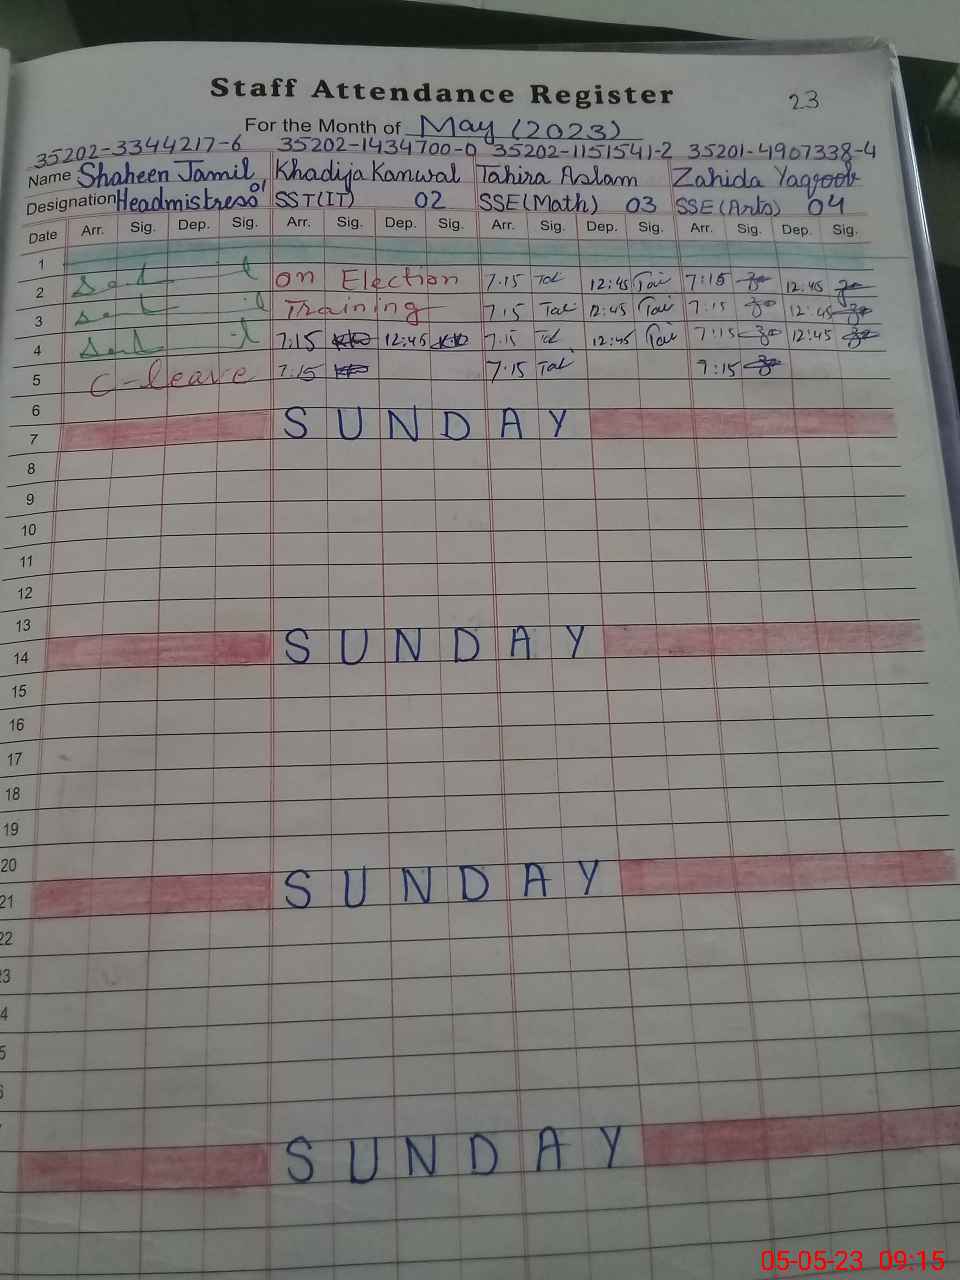 Staff Attendance Register
23
For the Month of May (2023)
35202-3344217-6 35202-1434700-0 35202-1151541-2 35201-4907338-4
Name Shaheen Jamil Khadija Kanwal Tahira Aslam Zahida Yaqoob
Designation Headmistress 01 SST(IT) 02 SSE(Math) 03 SSE(Arts) 04
Date Arr. Sig. Dep. Sig. Arr. Sig. Dep. Sig. Arr. Sig. Dep. Sig. Arr. Sig. Dep. Sig.
1
2 on Election 7.15 12:45 7:15 12:45
3 Training 7.15 12:45 7:15 12:45
4 7:15 12:45 7.15 12:45 7:15 12:45
5 C-leave 7.15 7.15 7:15
6
7 SUNDAY
8
9
10
11
12
13
14 SUNDAY
15
16
17
18
19
20
21 SUNDAY
22
3
4
5
6
SUNDAY
05-05-23 09:15